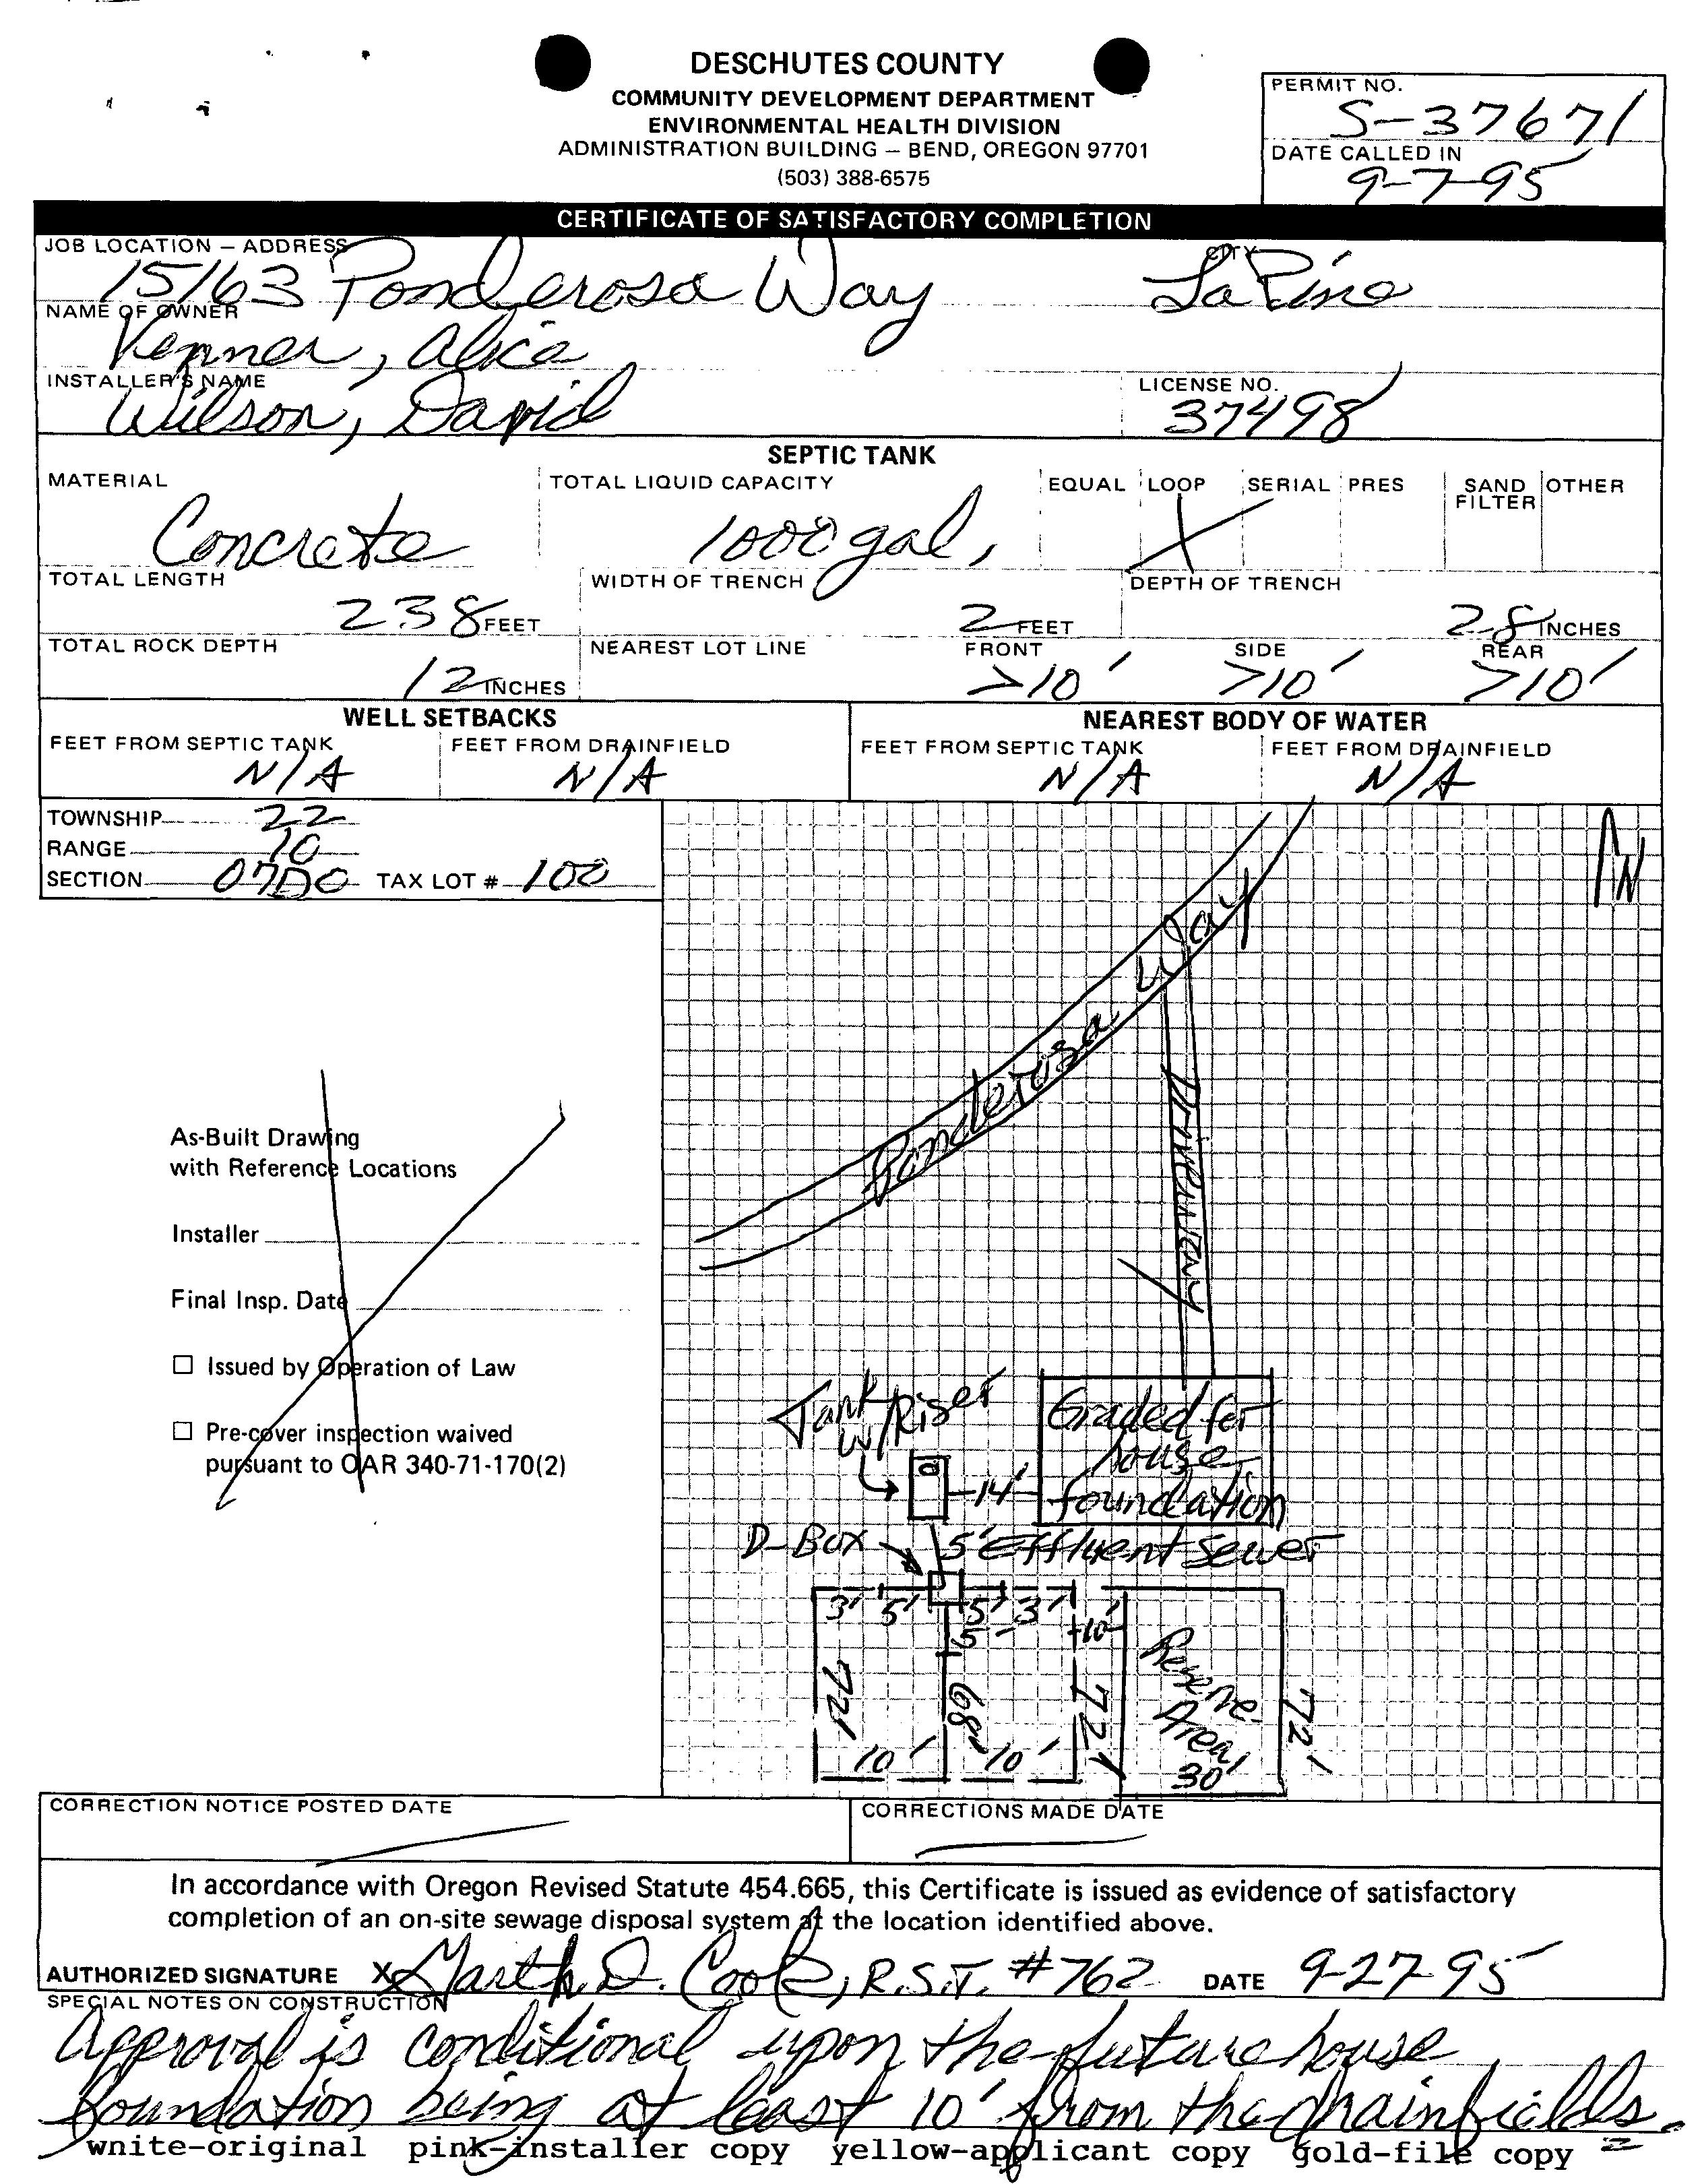 DESCHUTES COUNTY
COMMUNITY DEVELOPMENT DEPARTMENT
ENVIRONMENTAL HEALTH DIVISION
ADMINISTRATION BUILDING – BEND, OREGON 97701
(503) 388-6575
PERMIT NO.
S-37671
DATE CALLED IN
9-7-95
CERTIFICATE OF SATISFACTORY COMPLETION
JOB LOCATION – ADDRESS CITY
15163 Ponderosa Way LaPine
NAME OF OWNER
Venner, Alice
INSTALLER'S NAME LICENSE NO.
Wilson, David 37498
SEPTIC TANK
MATERIAL TOTAL LIQUID CAPACITY EQUAL LOOP SERIAL PRES SAND FILTER OTHER
Concrete 1000 gal, X
TOTAL LENGTH WIDTH OF TRENCH DEPTH OF TRENCH
238 FEET 2 FEET 28 INCHES
TOTAL ROCK DEPTH NEAREST LOT LINE FRONT SIDE REAR
12 INCHES >10' >10' >10'
WELL SETBACKS NEAREST BODY OF WATER
FEET FROM SEPTIC TANK FEET FROM DRAINFIELD FEET FROM SEPTIC TANK FEET FROM DRAINFIELD
N/A N/A N/A N/A
TOWNSHIP 22
RANGE 10
SECTION 07D0 TAX LOT # 100
N
Ponderosa Way
Driveway
As-Built Drawing
with Reference Locations
Installer
Final Insp. Date
Issued by Operation of Law
Pre-cover inspection waived
pursuant to OAR 340-71-170(2)
Tank w/Riser
Graded for
house
foundation
14'
D-Box 5' Effluent Sewer
3' 5' 5' 3'
5' 10'
72' 68' 72' Reserve Area 72'
10' 10' 30'
CORRECTION NOTICE POSTED DATE CORRECTIONS MADE DATE
In accordance with Oregon Revised Statute 454.665, this Certificate is issued as evidence of satisfactory
completion of an on-site sewage disposal system at the location identified above.
AUTHORIZED SIGNATURE X Marth D. Cook, R.S.T. #762 DATE 9-27-95
SPECIAL NOTES ON CONSTRUCTION
Approval is conditional upon the future house
foundation being at least 10' from the drainfields.
wnite-original pink-installer copy yellow-applicant copy gold-file copy